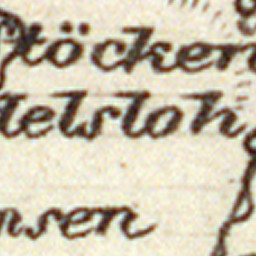 Stöcken
delsloh
nsen